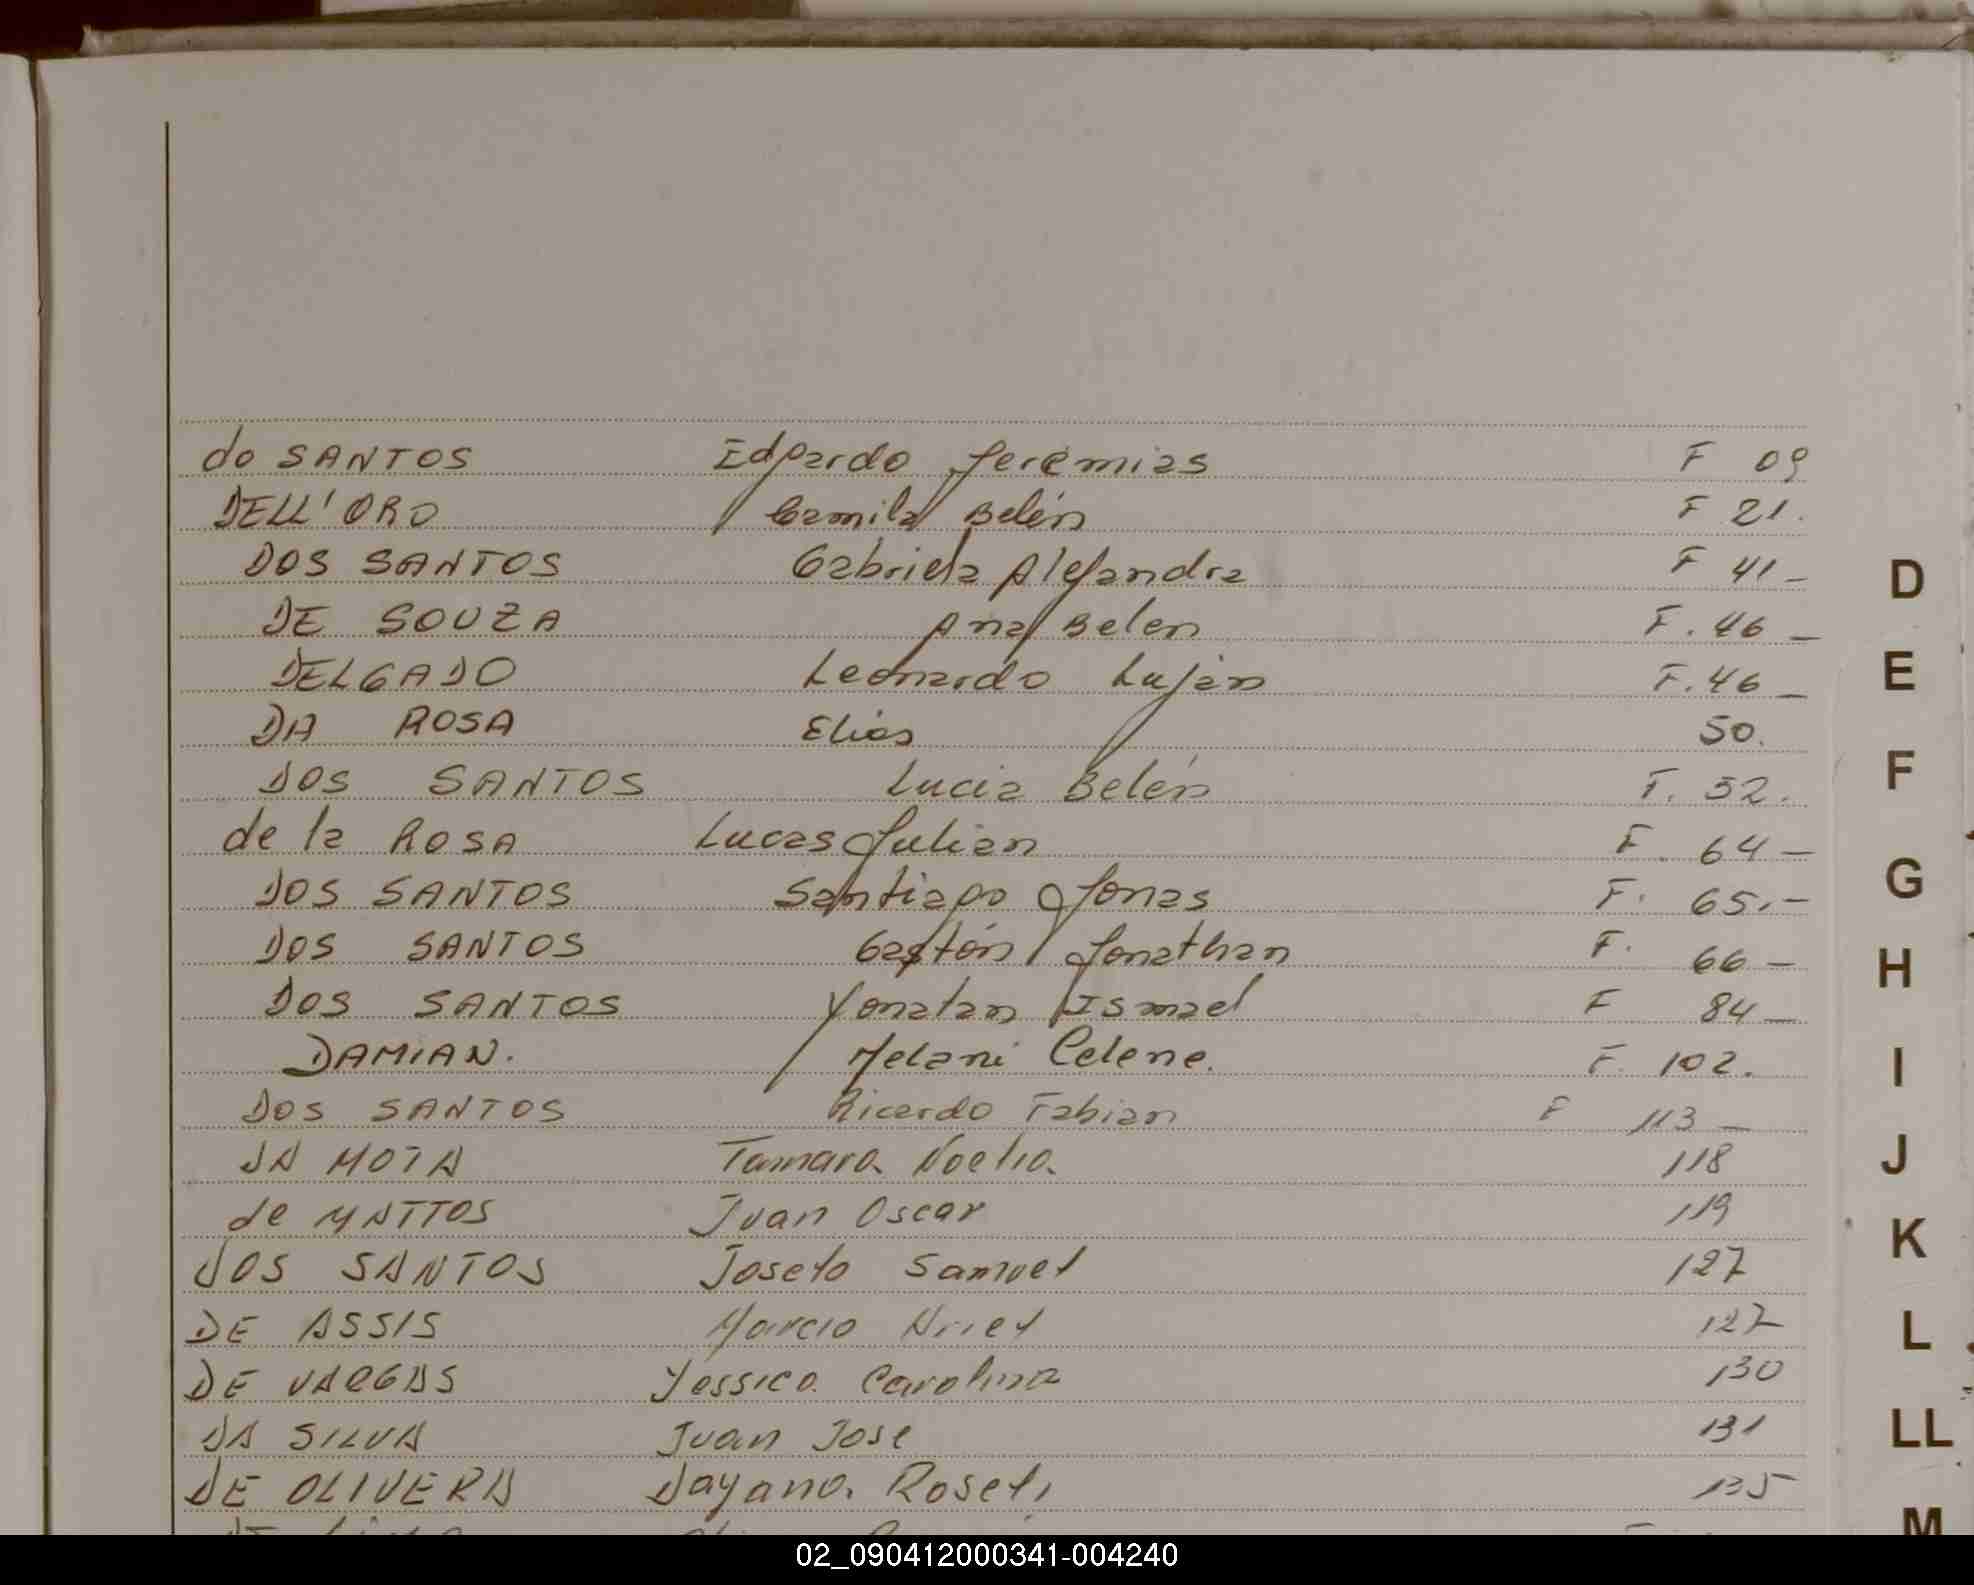 do SANTOS Edgardo Jeremias F 09
DELL'ORO Camila Belén F 21.
DOS SANTOS Gabriela Alejandra F 41 -
DE SOUZA Ana Belen F. 46 -
DELGADO Leonardo Luján F. 46 -
DA ROSA Elias 50.
DOS SANTOS Lucia Belén F. 52.
de la ROSA Lucas Julian F. 64 -
DOS SANTOS Santiago Jonas F. 65.-
DOS SANTOS Gastón Jonathan F. 66 -
DOS SANTOS Yonatan Ismael F 84 -
DAMIAN. Melani Celene. F. 102.
DOS SANTOS Ricardo Fabian F 113 -
DA MOTA Tamara Noelia 118
de MATTOS Juan Oscar 119
DOS SANTOS Joselo Samuel 127
DE ASSIS Marcio Ariel 127
DE VARGAS Yessica Carolina 130
DA SILVA Juan Jose 131
DE OLIVERA Dayana Roseli 135
D
E
F
G
H
I
J
K
L
LL
M
02_090412000341-004240